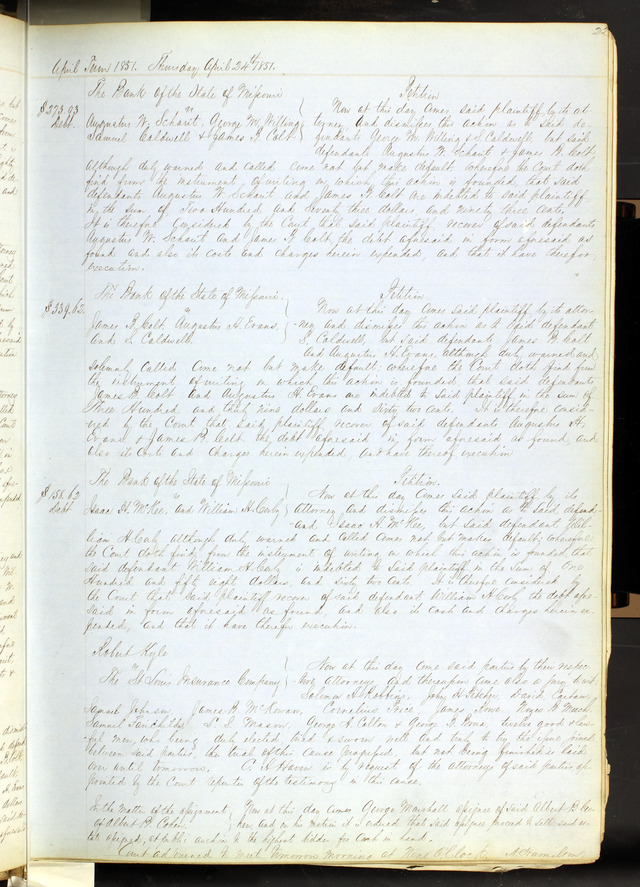 April Term 1851. Thursday April 24th 1851.
The Bank of the State of Missouri Petition
$273.93 vs Now at this day comes said plaintiff by its at-
Debt. Augustus W. Scharit, George M. Willing torney and dismisses the action as to said de-
Samuel Caldwell & James B. Colt fendants George M. Willing & S. Caldwell, but said
defendants Augustus W. Scharit & James B. Colt
although duly warned and called come not but make default wherefore the Court doth
find from the instrument of writing on which this action is founded that said
defendants Augustus W. Scharit and James B. Colt are indebted to said plaintiff
in the sum of Two Hundred and seventy three dollars and ninety three cents.
It is therefore considered by the Court that said plaintiff recover of said defendants
Augustus W. Scharit and James B. Colt, the debt aforesaid in form aforesaid as
found and also its costs and charges herein expended, and that it have therefor
execution.
The Bank of the State of Missouri. Petition
$339.62 vs Now at this day comes said plaintiff by its attor-
James B. Colt, Augustus H. Evans, ney and dismisses this action as to said defendant
and S. Caldwell S. Caldwell, but said defendants James B. Colt
and Augustus H. Evans although duly warned and
solemnly called come not but make default, wherefore the Court doth find from
the instrument of writing on which this action is founded that said defendants
James B. Colt and Augustus H. Evans are indebted to said plaintiff in the sum of
Three Hundred and thirty nine dollars and sixty two cents. It is therefore consid-
ered by the Court that said plaintiff recover of said defendants Augustus H.
Evans & James B. Colt the debt aforesaid in form aforesaid as found, and
also its costs and charges herein expended and have thereof execution
The Bank of the State of Missouri Petition.
$158.62 vs Now at this day comes said plaintiff by its
Debt Isaac H. McKee, and William H. attorney and dismisses this action as to said defend-
ant Isaac H. McKee, but said defendant Will-
iam H. although duly warned and called comes not but makes default; wherefore
the Court doth find from the instrument of writing on which this action is founded, that
said defendant William H. is indebted to said plaintiff in the sum of One
Hundred and fifty eight dollars, and sixty two cents. It is therefore considered by
the Court that said plaintiff recover of said defendant William H. the debt afore-
said in form aforesaid as found, and also its costs and charges herein ex-
pended, and that it have therefor execution.
Robert Kyle
vs Now at this day come said parties by their respec-
The St Louis Insurance Company tive attorneys and thereupon came also a jury to wit
Solomon H. John H. David
Samuel Johnson, James B. McKowan, Cornelius Price James Howe
Samuel S. S. Mason, George & George twelve good & law-
ful men, who being duly elected, tried & sworn well and truly to try the issue joined
between said parties, the trial of this cause progressed, but not being finished is laid
over until tomorrow. C. A. Haven is by request of the attorneys of said parties ap-
pointed by the Court reporter of the testimony in this cause.
In the matter of the assignment Now at this day comes George Marshall assignee of said Albert B.
of Albert B. and on his motion it is ordered that said assignee proceed to sell said es-
tate assigned, at public auction to the highest bidder for Cash in hand.
Court adjourned to meet tomorrow morning at Ten O'Clock